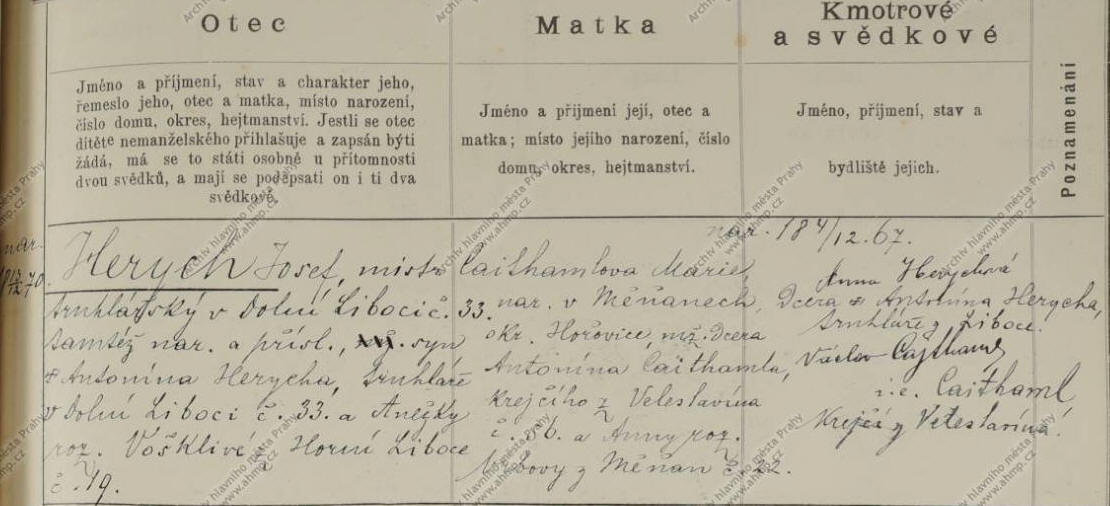 Otec
Jméno a příjmení, stav a charakter jeho,
řemeslo jeho, otec a matka, místo narození,
číslo domu, okres, hejtmanství. Jestli se otec
dítěte nemanželského přihlašuje a zapsán býti
žádá, má se to státi osobně u přítomnosti
dvou svědků, a mají se podepsati on i ti dva
svědkové.
Matka
Jméno a příjmení její, otec a
matka; místo jejího narození, číslo
domu, okres, hejtmanství.
Kmotrové
a svědkové
Jméno, příjmení, stav a
bydliště jejich.
Poznamenání
nar.
70.
Herych Josef, mistr
truhlářský v Dolní Liboci č. 33.
tamtéž nar. a přísl., syn
† Antonína Herycha, truhláře
v Dolní Liboci č. 33. a Anežky
roz. Vošklivé z Horní Liboce
č. 19.
nar. 18 4/12. 67.
Caithamlova Marie,
nar. v Měňanech,
okr. Hořovice, mž. dcera
Antonína Caithamla,
krejčího z Veleslavína
č. 36. a Anny roz.
z Měňan č. 22.
Anna Herychová
dcera † Antonína Herycha,
truhláře z Liboce.
Václav Cajthaml
i.e. Caithaml
Krejčí z Veleslavína.
Archiv hlavního města Prahy
www.ahmp.cz